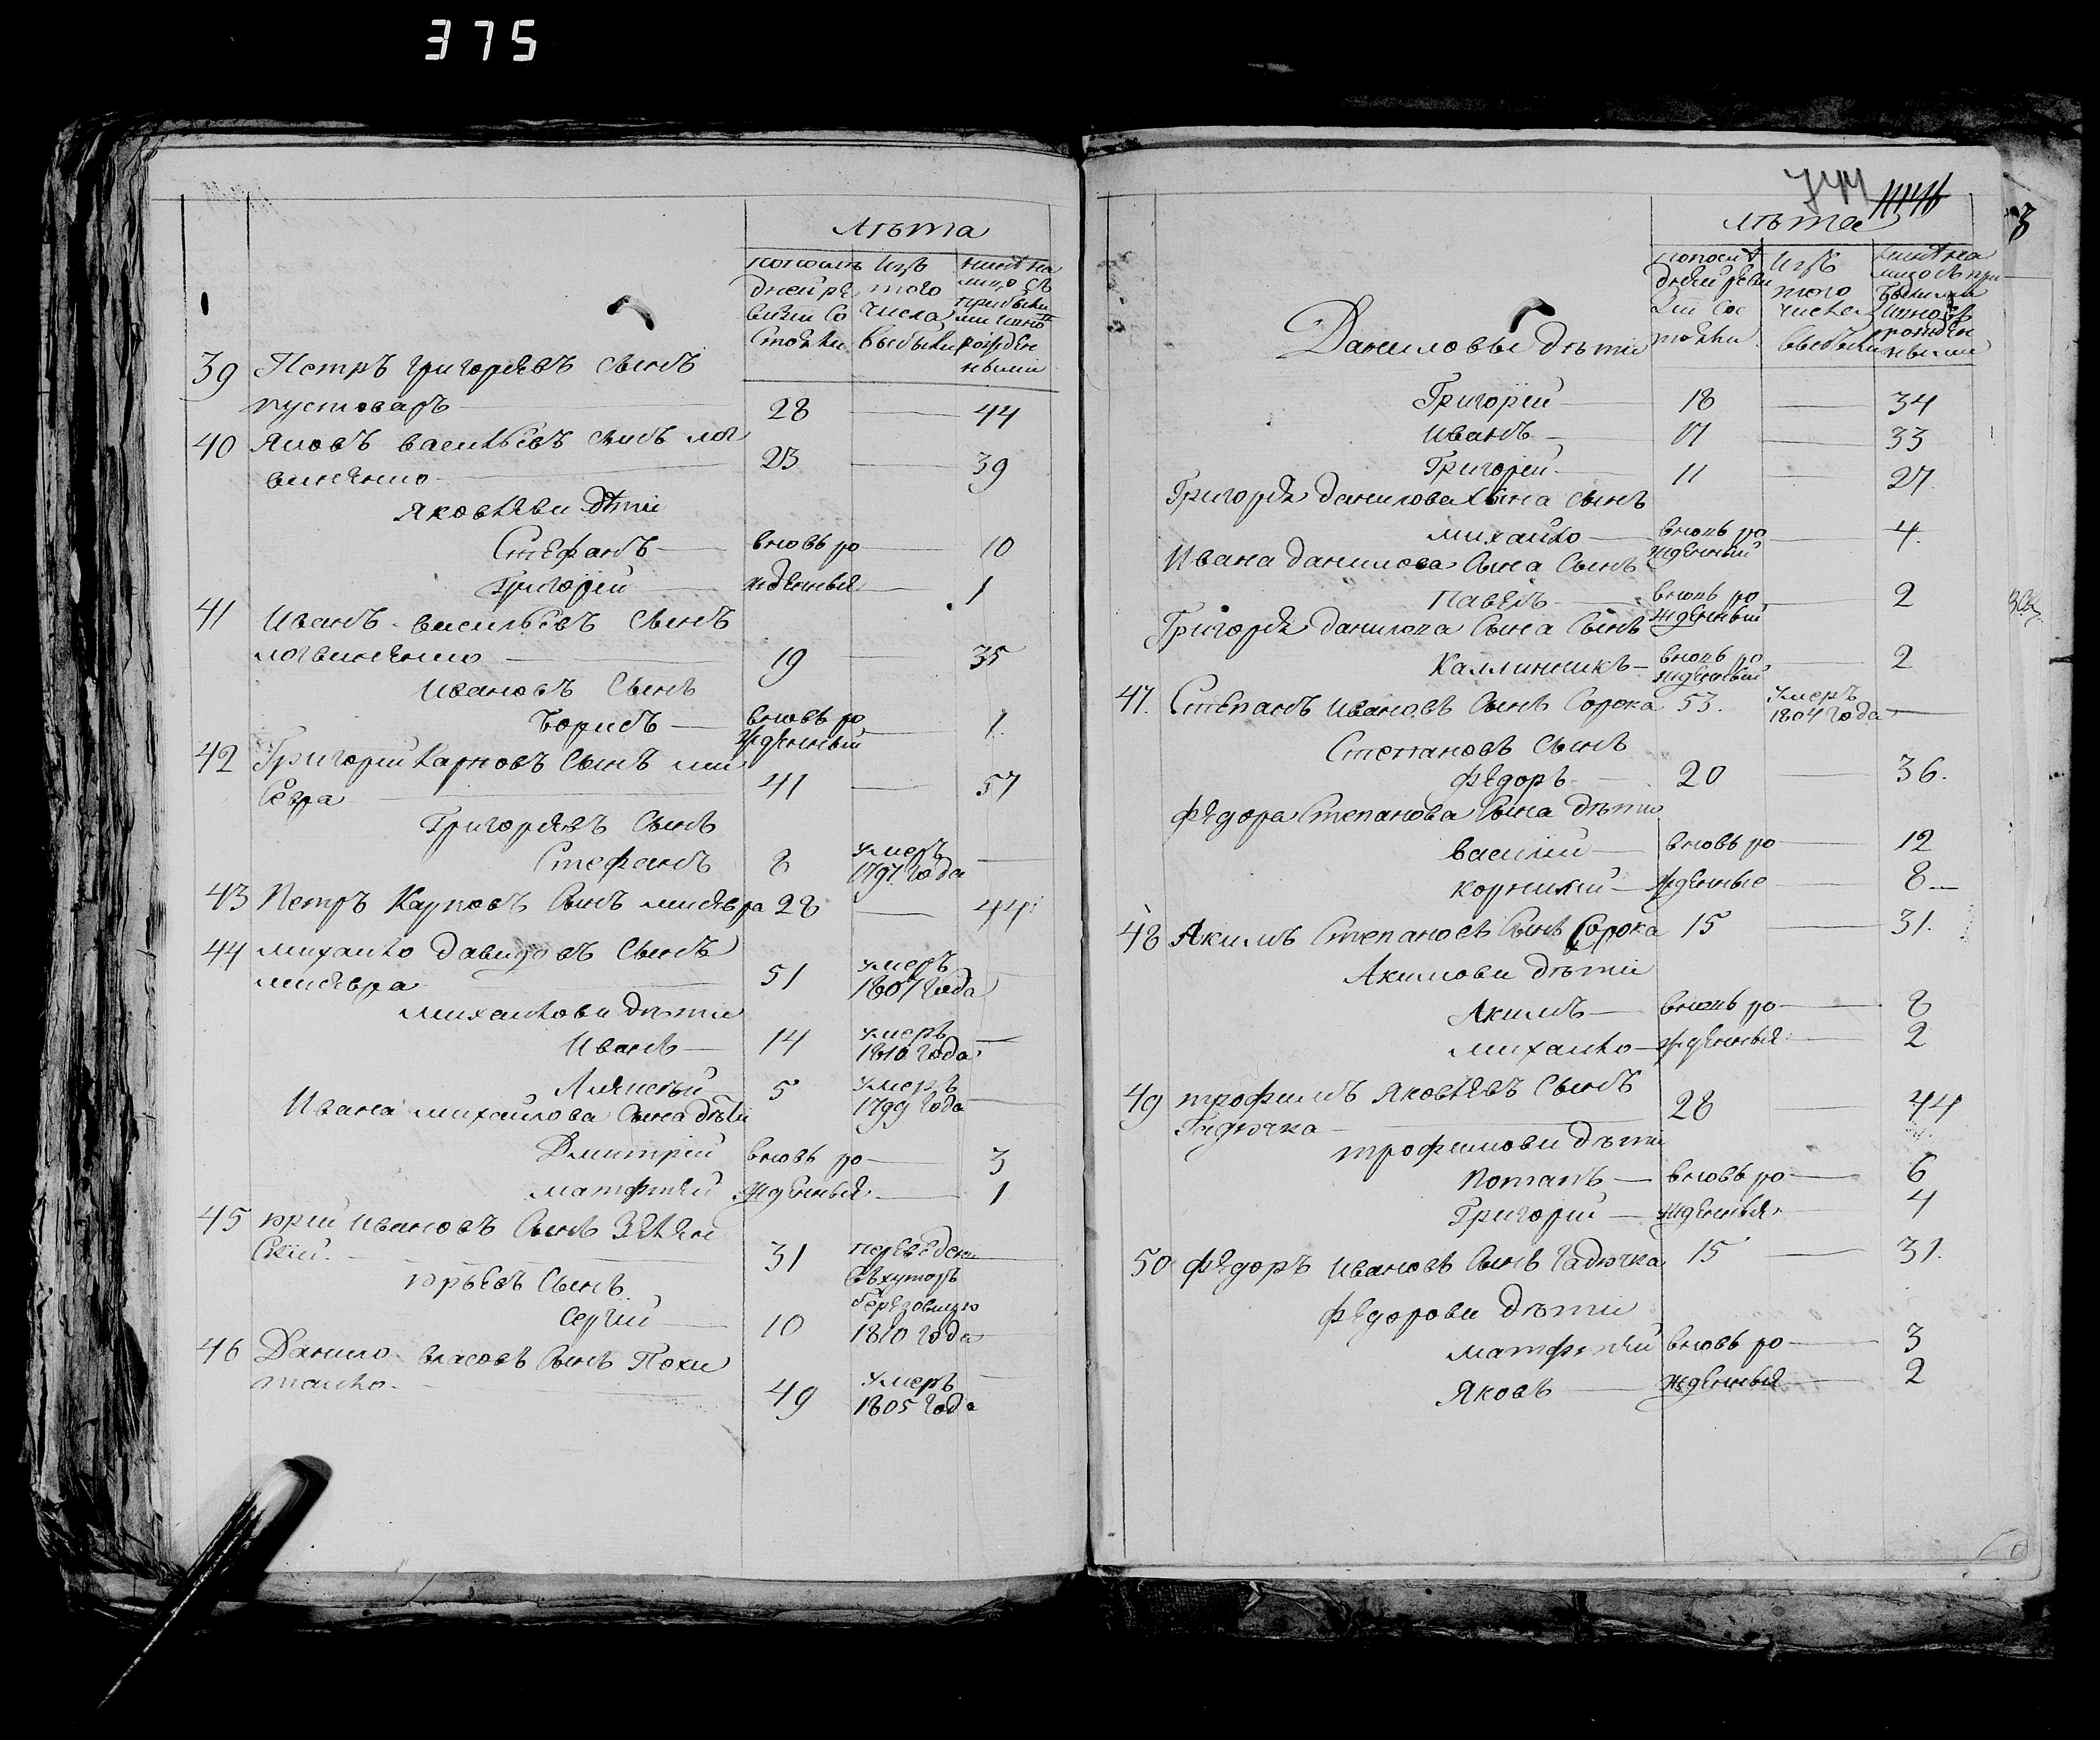 375
Лѣта
по последней ревизіи состояли
изъ того числа выбыли
нынѣ на лицо съ прибылыми и вновь рожденными
39 Петръ григорьевъ сынъ
пустоваръ 28 — 44
40 Яковъ васильевъ сынъ лог
виненко 23 — 39
яковлеви дѣти
Стефанъ вновь ро — 10
григорій жденныя — 1
41 Иванъ васильевъ сынъ
логвиненко 19 — 35
Ивановъ сынъ
борисъ вновь ро
жденный — 1
42 Григорій Карповъ сынъ ми
севра 41 — 57
Григорьевъ сынъ
Стефанъ 8 умеръ
1797 года —
43 Петръ Карповъ сынъ мисевра 28 — 44
44 михайло давидовъ сынъ
мисевра 51 умеръ
1807 года —
михайлови дѣти
Иванъ 14 умеръ
1810 года —
Алексѣй 5 умеръ
1799 года —
Ивана михайлова сына дѣти
Дмитрій вновь ро — 3
матфѣй жденныя — 1
45 юрій ивановъ сынъ Зелен
скій 31 переведены
юрьевъ сынъ въ хуторъ
Сергій 10 1810 года
46 Данило власовъ сынъ Похи
тайло 49 умеръ
1805 года —
744
3
Лѣта
по последней ревизіи состояли
изъ того числа выбыли
нынѣ на лицо съ прибылыми и вновь рожденными
Даниловы дѣти
Григорій 18 — 34
Иванъ 17 — 33
Григорій 11 — 27
Григорья данилова сына сынъ
михайло вновь ро
жденный — 4
Ивана данилова сына сынъ
Павелъ вновь ро
жденный — 2
Григорья данилова сына сынъ
Каллинникъ вновь ро
жденный — 2
47 Степанъ ивановъ сынъ Сорока 53 умеръ
1804 года —
Степановъ сынъ
федоръ 20 — 36
федора Степанова сына дѣти
василій вновь ро — 12
корнилій жденные — 8
48 Акимъ Степановъ сынъ Сорока 15 — 31
Акимови дѣти
Акимъ вновь ро — 8
михайло жденныя — 2
49 трофимъ яковлевъ сынъ
Гадючка 28 — 44
трофимови дѣти
Потапъ вновь ро — 6
Григорій жденныя — 4
50 федоръ ивановъ сынъ Гадючка 15 — 31
федорови дѣти
матфѣй вновь ро — 3
Яковъ жденныя — 2